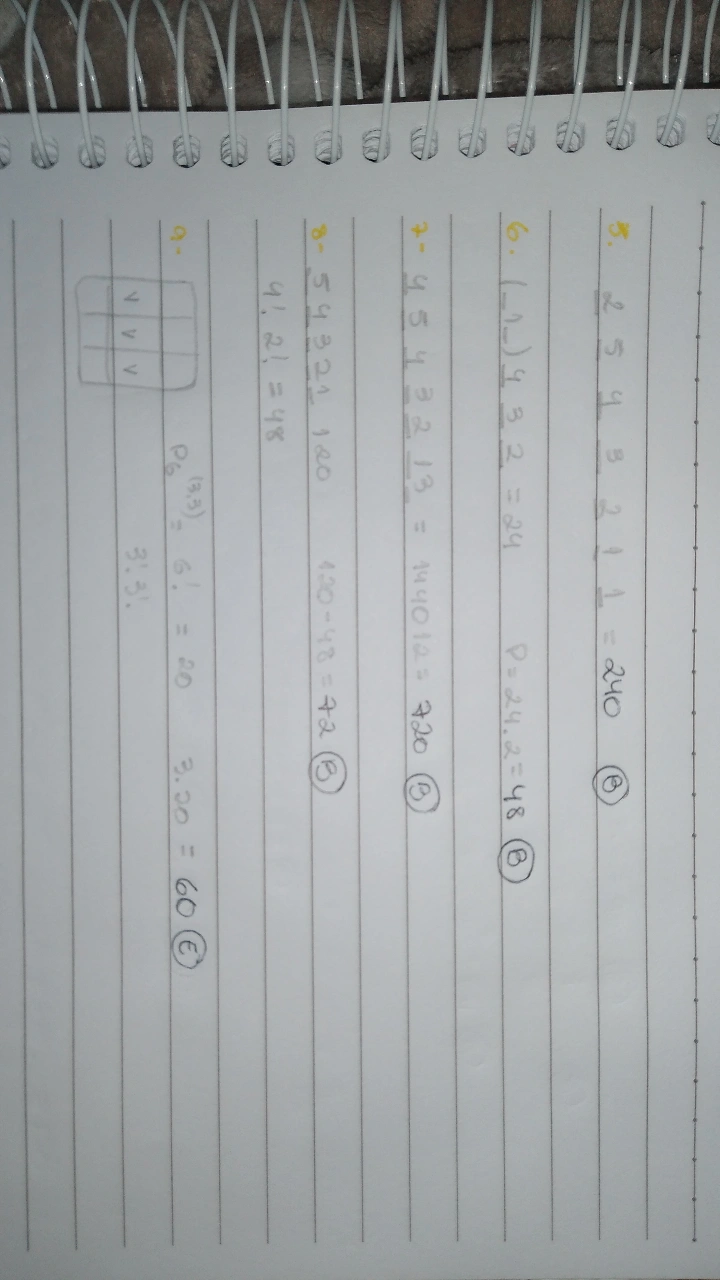 5. 2 5 4 3 2 1 1 = 240 (B)
6. (_1_) 4 3 2 = 24 P = 24.2 = 48 (B)
7- 4 5 4 3 2 1 3 = 1440 12 = 720 (B)
8- 5 4 3 2 1 120 120 - 48 = 72 (B)
4! 2! = 48
9. P6 (3,3) = 6! = 20 3.20 = 60 (E)
3! 3!
v v v